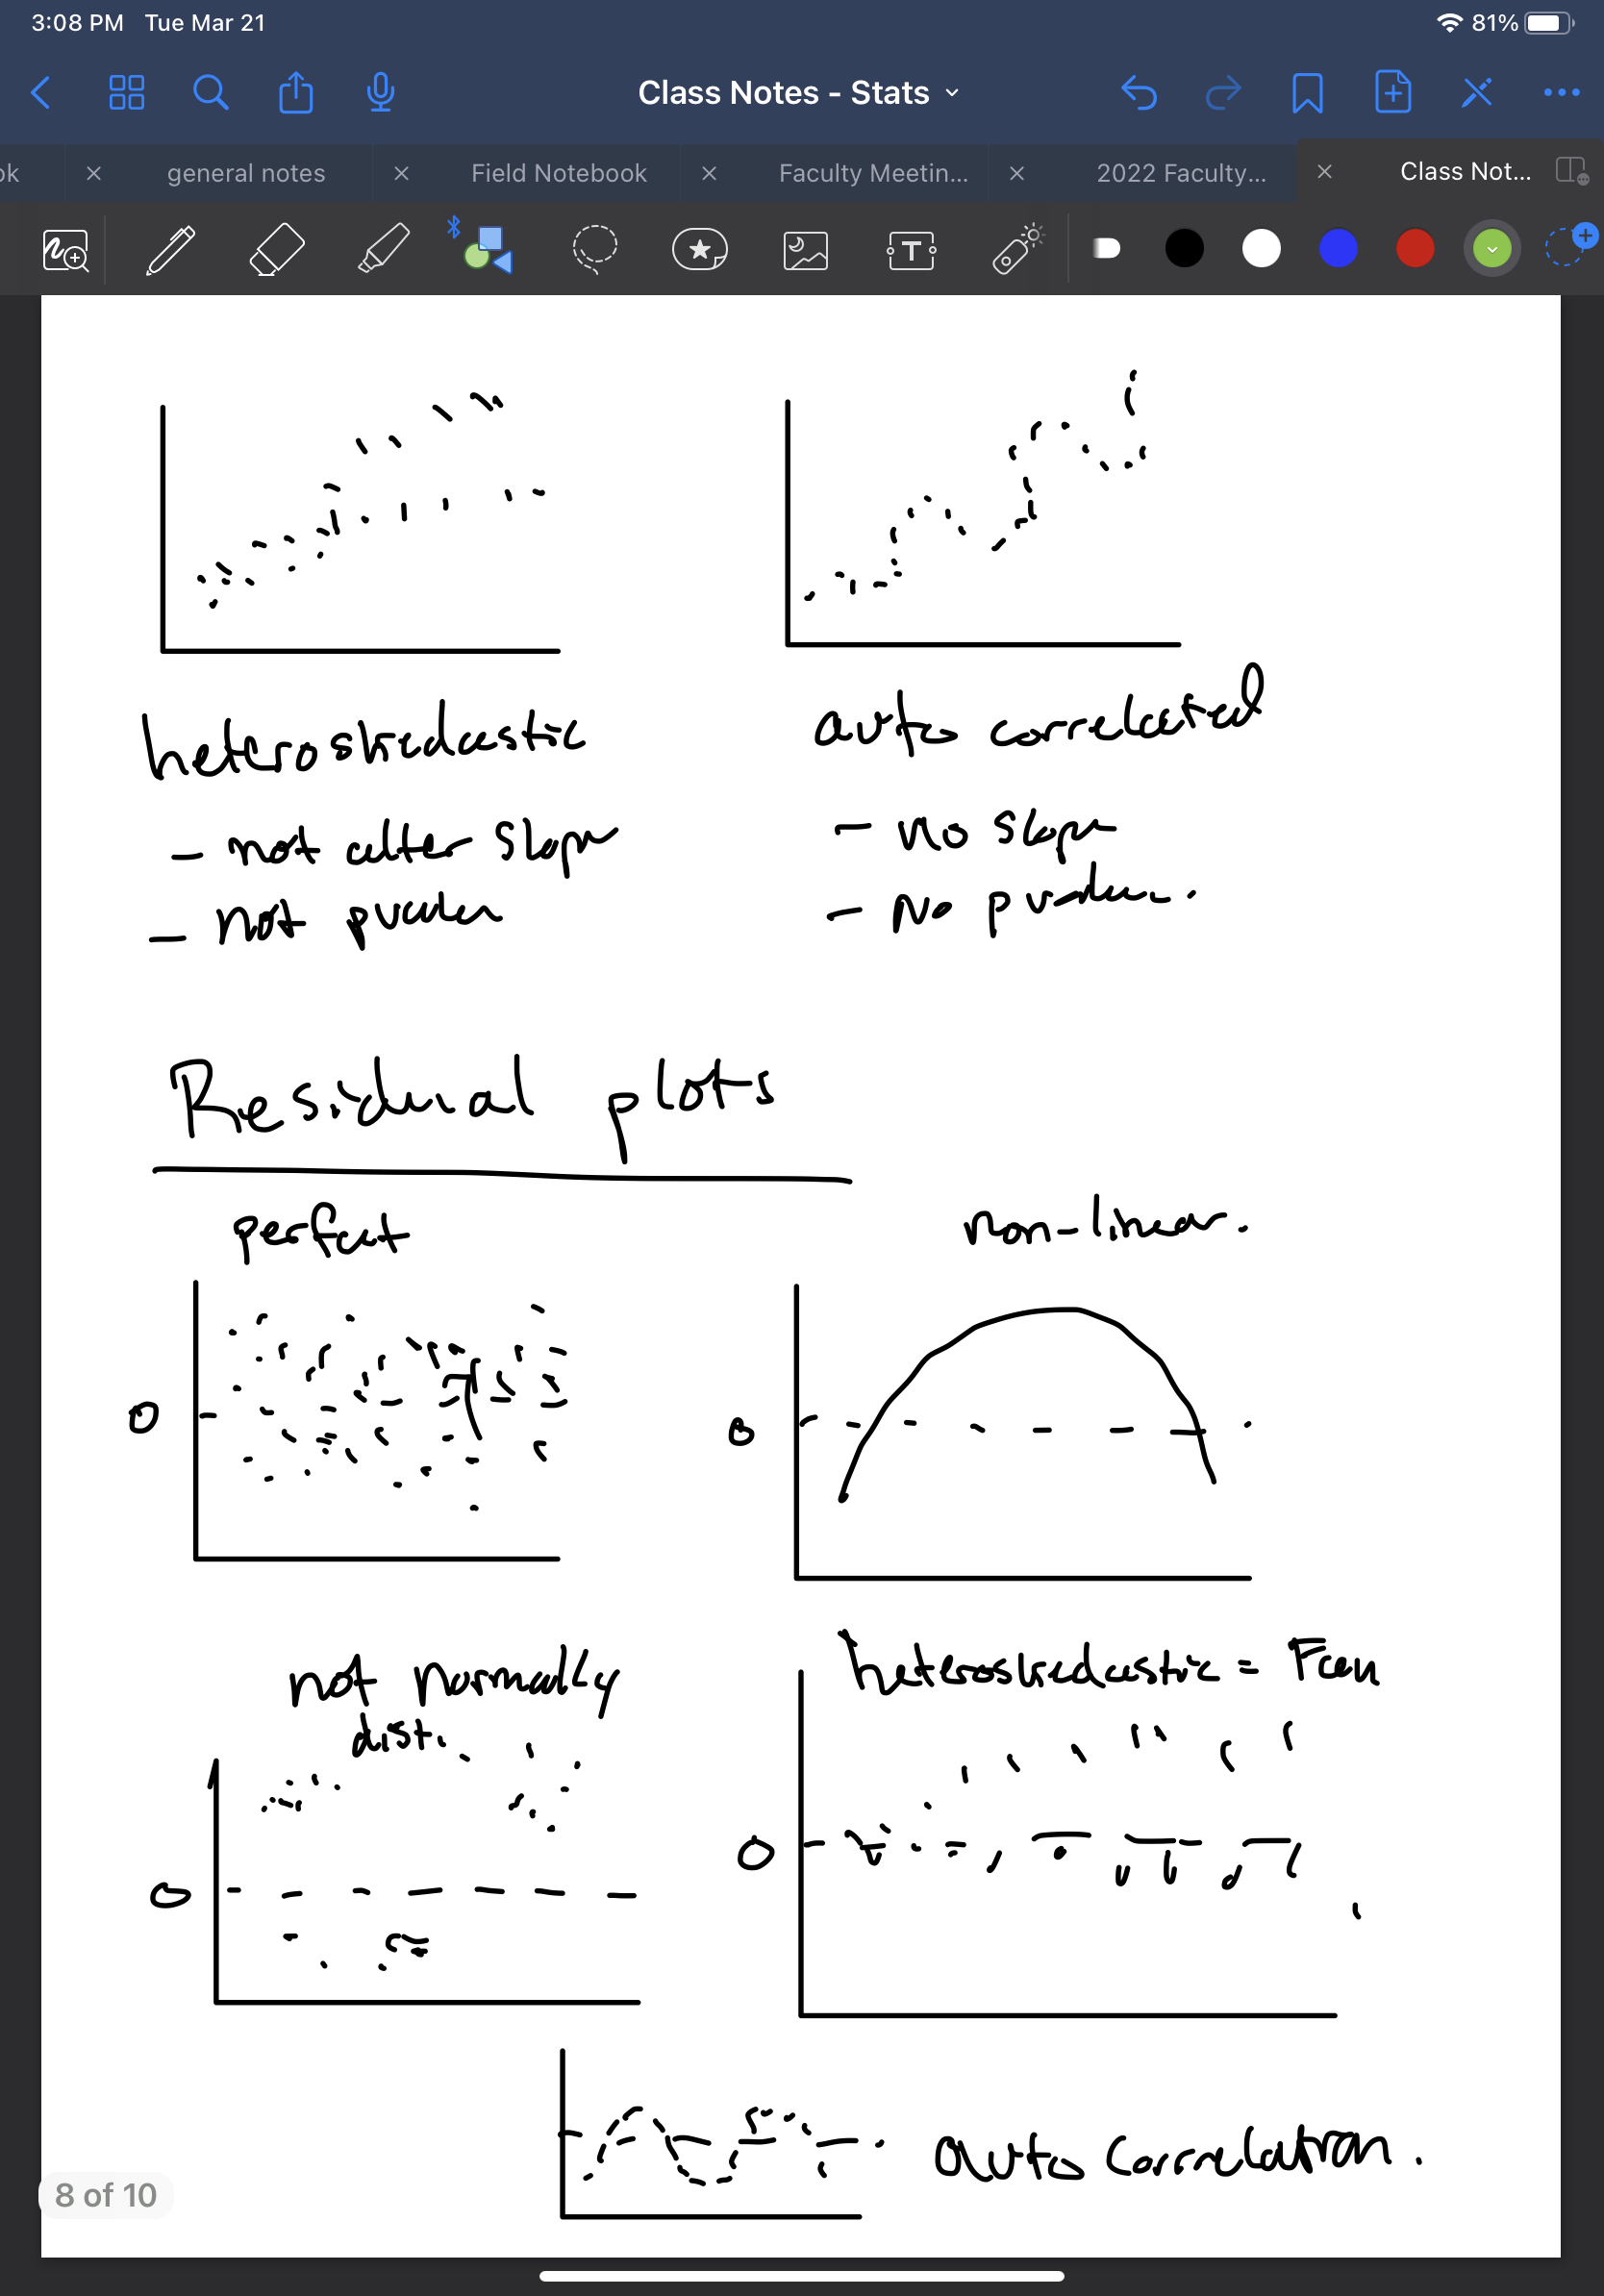 3:08 PM Tue Mar 21
81%
Class Notes - Stats
ok
general notes
Field Notebook
Faculty Meetin...
2022 Faculty...
Class Not...
T
heteroskedastic
auto correlated
- not alter slope
- no slope
- not
- No
Residual plots
perfect
non-linear.
0
0
not normally
dist.
heteroskedastic = Fan
0
0
auto correlation.
8 of 10